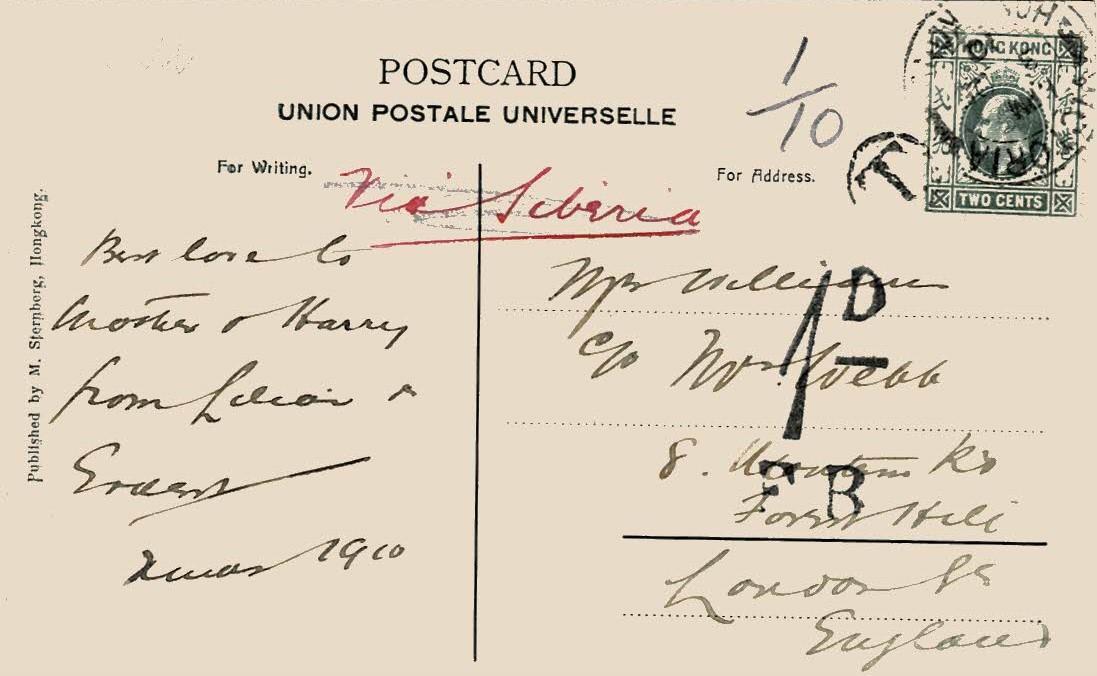 POSTCARD
UNION POSTALE UNIVERSELLE
1/10
HONG KONG
TWO CENTS
T
For Writing.
For Address.
Via Siberia
Published by M. Sternberg, Hongkong.
Best love to
Mother & Harry
from Lilian &
Ernest
Xmas 1910
Mrs Williams
c/o Mrs Webb
8. Rd
Forest Hill
London SE
England
1D
F B